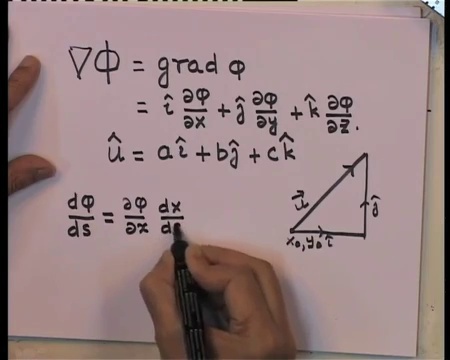 ∇Φ = grad φ
= î ∂φ/∂x + ĵ ∂φ/∂y + k̂ ∂φ/∂z.
û = aî + bĵ + ck̂
dφ/ds = ∂φ/∂x dx/ds
u⃗
ĵ
x₀, y₀ î